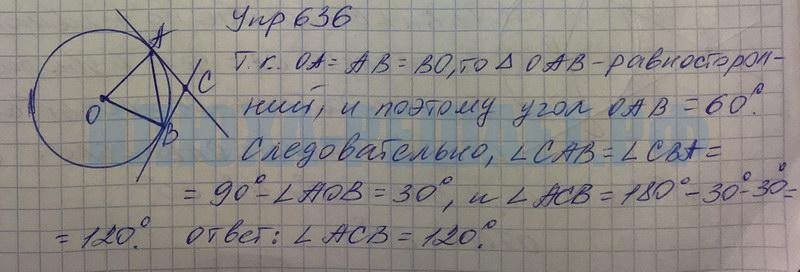 Упр 636
A
C
O
B
Т.к. OA = AB = BO, то △ OAB - равносторон-
ний, и поэтому угол OAB = 60°.
Следовательно, ∠CAB = ∠CBA =
= 90° - ∠AOB = 30°, и ∠ACB = 180° - 30° - 30° =
= 120°. Ответ: ∠ACB = 120°.